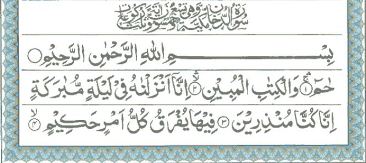 سُوْرَةُ الدُّخَانِ مَكِّيَّةٌ وَّهِيَ تِسْعٌ
بِسْمِ اللهِ الرَّحْمٰنِ الرَّحِيْمِ
حٰمٓ ۝١ وَالْكِتٰبِ الْمُبِيْنِ ۝٢ اِنَّاۤ اَنْزَلْنٰهُ فِيْ لَيْلَةٍ مُّبٰرَكَةٍ
اِنَّا كُنَّا مُنْذِرِيْنَ ۝٣ فِيْهَا يُفْرَقُ كُلُّ اَمْرٍ حَكِيْمٍ ۝٤